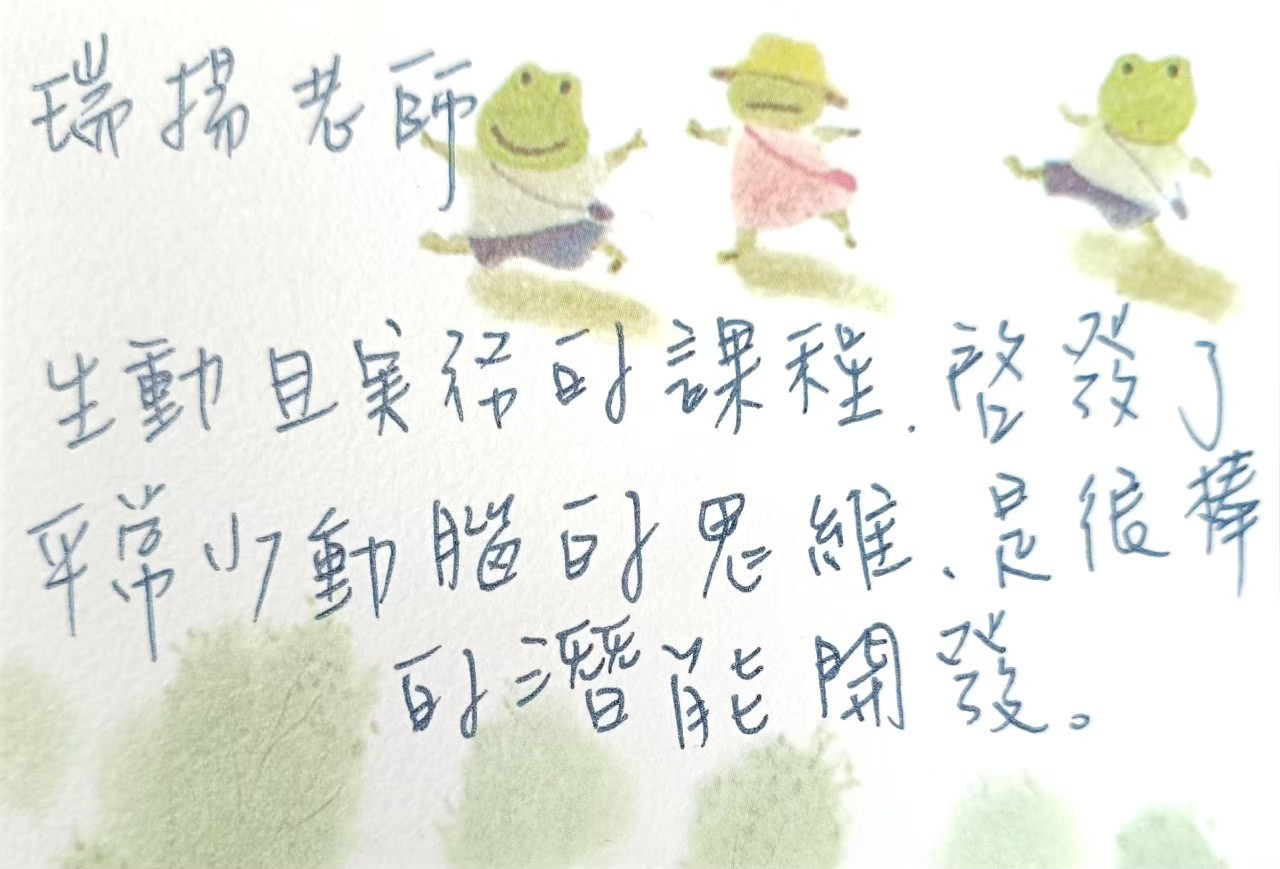 瑞揚老師
生動且實務的課程、啓發了
平常少動腦的思維、是很棒
的潛能開發。